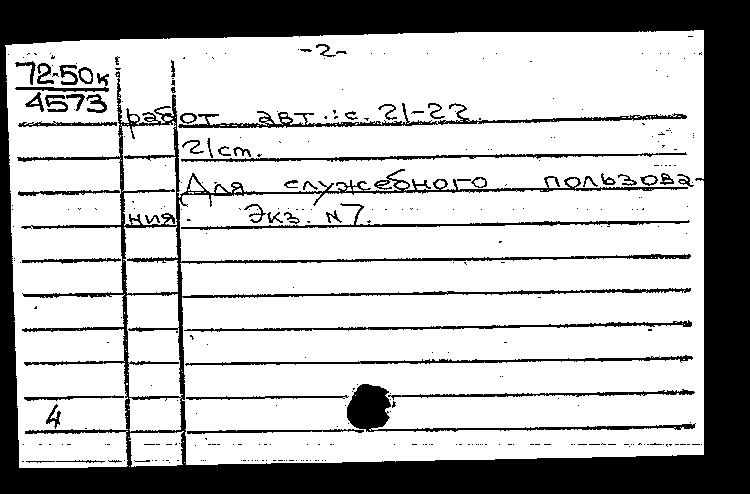 -2-
72-50к
4573
работ авт.: с. 21-22.
21 ст.
Для служебного пользова-
ния. Экз. №7.
4